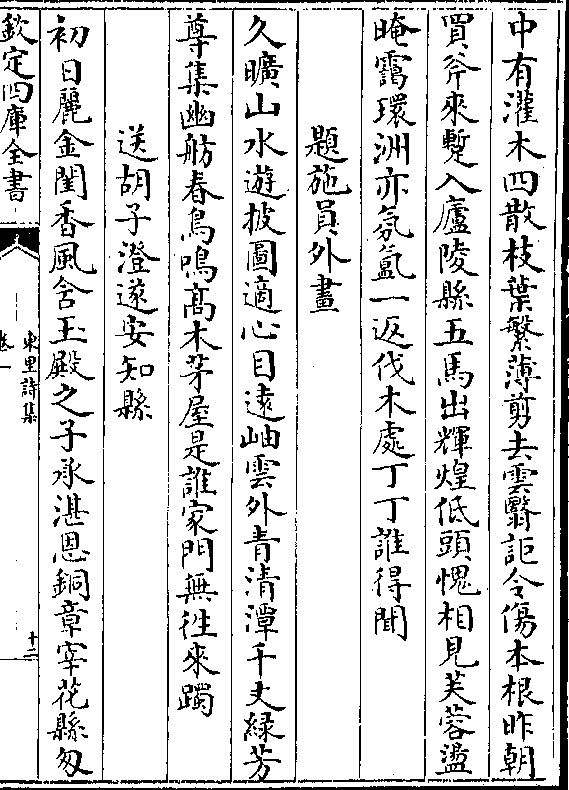 中有灌木四散枝葉繁薄剪去雲翳詎令傷本根昨朝
買斧來蹔入廬陵縣五馬出輝煌低頭愧相見芙蓉盪
晻靄環洲亦氛氲一返伐木處丁丁誰得聞
題施員外畫
久曠山水遊披圖適心目遠岫雲外青清潭千丈緑芳
尊集幽舫春鳥鳴髙木茅屋是誰家門無徃來躅
送胡子澄遂安知縣
初日麗金閨香風含玉殿之子承湛恩銅章宰花縣匆
欽定四庫全書
東里詩集
卷一
十二